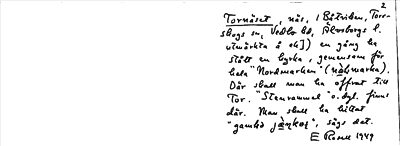 2
Tornäset, näs, i Båtviken, Torr-
skogs sn, Vedbo hd, Älvsborgs l.
utmärkta å ek]) en gång ha
stått en kyrka, gemensam för
hela "Nordmarken" (
Där skall man ha offrat till
Tor. "Stenrammel" o. dyl. finns
där. Man skall ha hittat
"gamla ", sägs det.
E Rosell 1949